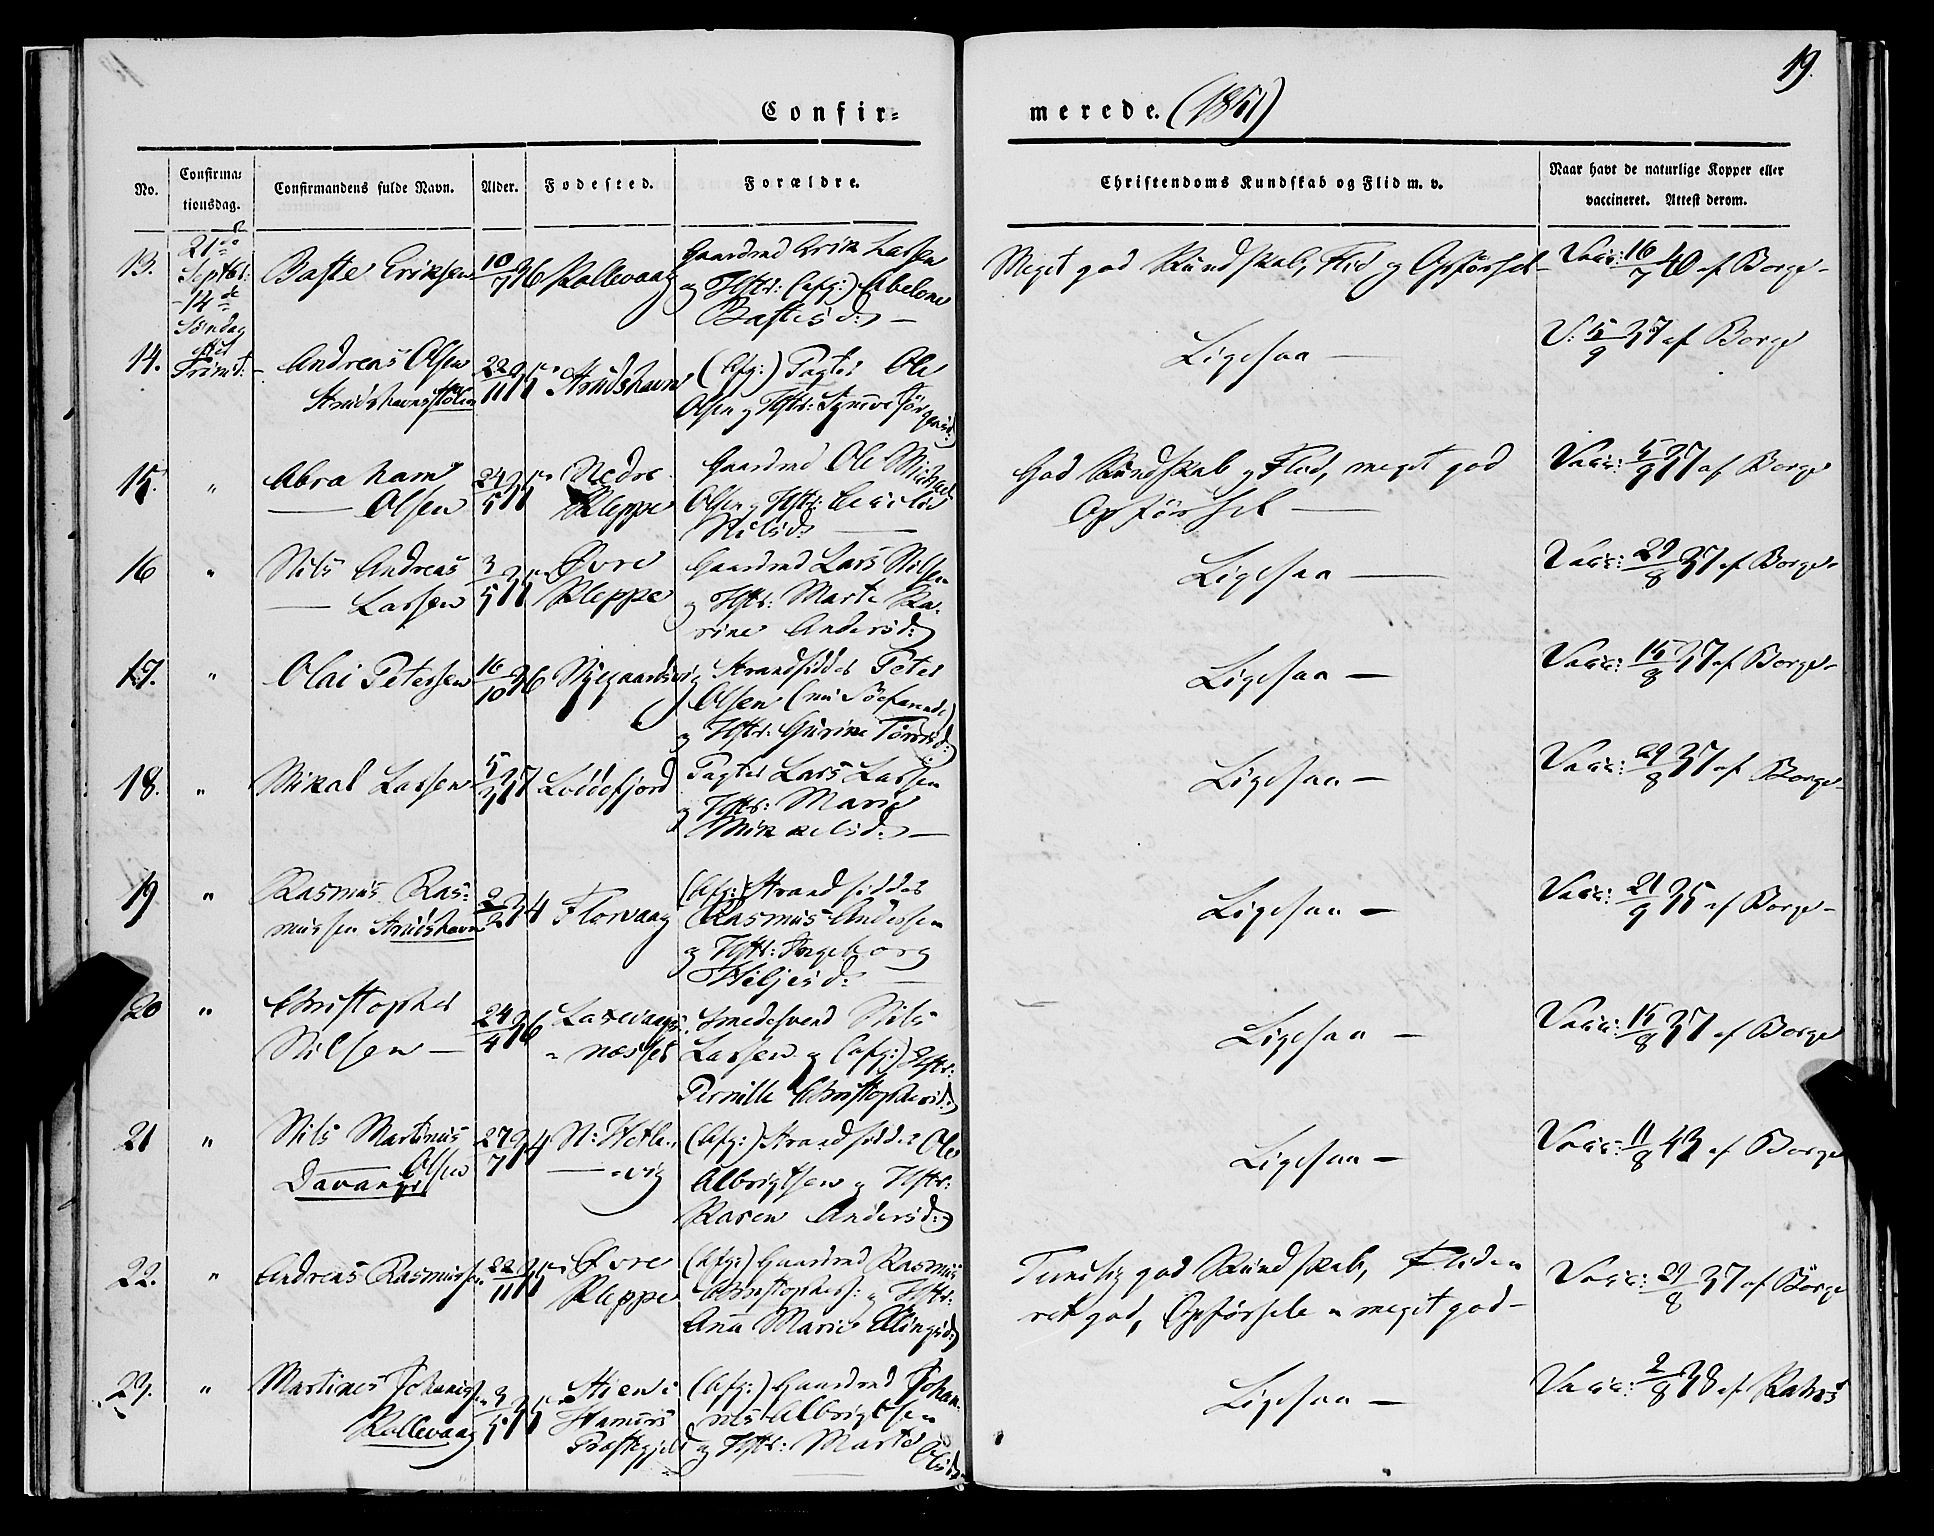 19.
Confir=
merede. (1851)
No.
Confirma=
tionsdag.
Confirmandens fulde Navn.
Alder.
Fødested.
Forældre.
Christendoms Kundskab og Flid m. v.
Naar havt de naturlige Kopper eller
vaccineret. Attest derom.
13.
21de
Septbr:
14de
Søndag
efter
Trinit:
Baste Eriksen
10/7 36
Kollevaag
Gaardmd Erik Larsen
og Hstr: (afg:) Abelone
Bastesd: —
Meget god Kundskab, Flid og Opførsel —
Vacc: 16/7 40 af Borge —
14.
Andreas Olsen
Strudshavnstølen
22/11 35
Strudshavn
(Afg:) Pagter Ole
Olsen og Hstr: Synneve Jørgensd:
Ligesaa —
V: 5/9 37 af Borge
15.
"
Abraham
— Olsen
24/5 35
Nedre
Kleppe
Gaardmd Ole Michael
Olsen og Hstr: Cecilie
Nilsd: —
God Kundskab og Flid, meget god
Opførsel —
Vacc: 5/9 37 af Borge
16
"
Nils Andreas
— Larsen
3/5 35
Øvre
Kleppe
Gaardmd Lars Nilsen
og Hstr: Marte Ka-
rine Andersd:
Ligesaa —
Vacc: 29/8 37 af Borge
17.
"
Olai Petersen
16/10 36
Strandsidder Peter
Olsen (nu Søefarende)
og Hstr: Gurine
Ligesaa —
Vacc: 15/8 37 af Borge —
18.
"
Mikal Larsen
Loddefjord
Pagter Lars Larsen
og Hstr: Marie
Mikkelsd: —
Ligesaa —
Vacc: 29/8 37 af Borge —
19
"
Rasmus Ras-
mussen Strudshavn
2/2 34
Florvaag
(Afg:) Strandsidder
Rasmus Andersen
og Hstr: Ingeborg
Ligesaa —
Vacc: 21/9 35 af Borge —
20
"
Christopher
Nilsen —
24/4 36
Laxevaags-
næsset
Smedesvend Nils
Larsen og (afg:) Hstr:
Pernille Christophersd:
Ligesaa —
Vacc: 15/8 37 af Borge
21
"
Nils Martinus
— Olsen
Davanger
27/7 34
N: Hetle-
— vig
(Afg:) Strandsidder Ole
Albrigtsen og Hstr:
Karen Andersd:
Ligesaa —
Vacc: 11/8 43 af Borge
22.
"
Andreas Rasmussen
22/11 35
Øvre
Kleppe
(Afg:) Gaardmd Rasmus
Christophers: og Hstr:
Ana Marie Ellingsd:
Temlig god Kundskab, Fliden
ret god, Opførsele meget god —
Vacc: 29/8 37 af Borge
23.
"
Martines Johaness:
Kollevaag
3/5 35
Præstegjeld
(Afg:) Gaardmd Johan-
nes Albrigtsen
og Hstr: Marte
Olsd:
Ligesaa —
Vacc: 2/8 38 af